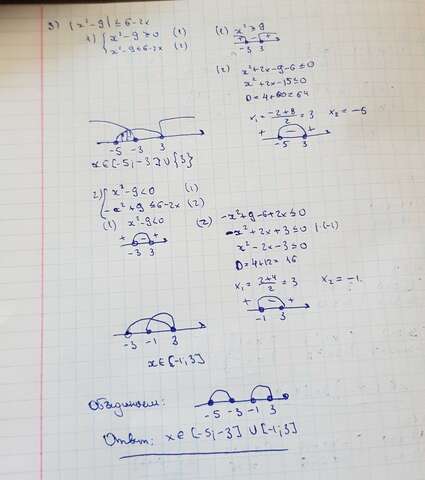 3) |x²-9| ≤ 6-2x
1) { x²-9 ≥ 0 (1)
x²-9 ≤ 6-2x (2)
(1) x² ≥ 9
+ - +
-3 3
(2) x²+2x-9-6 ≤ 0
x²+2x-15 ≤ 0
D = 4+60 = 64
x₁ = (-2+8)/2 = 3 x₂ = -5
+ - +
-5 3
-5 -3 3
x ∈ [-5; -3] ∪ {3}
2) { x²-9 < 0 (1)
-x²+9 ≤ 6-2x (2)
(1) x²-9 < 0
+ - +
-3 3
(2) -x²+9-6+2x ≤ 0
-x²+2x+3 ≤ 0 | (-1)
x²-2x-3 ≤ 0
D = 4+12 = 16
x₁ = (2+4)/2 = 3 x₂ = -1
+ - +
-1 3
-3 -1 3
x ∈ [-1; 3]
Объединяем:
-5 -3 -1 3
Ответ: x ∈ [-5; -3] ∪ [-1; 3]